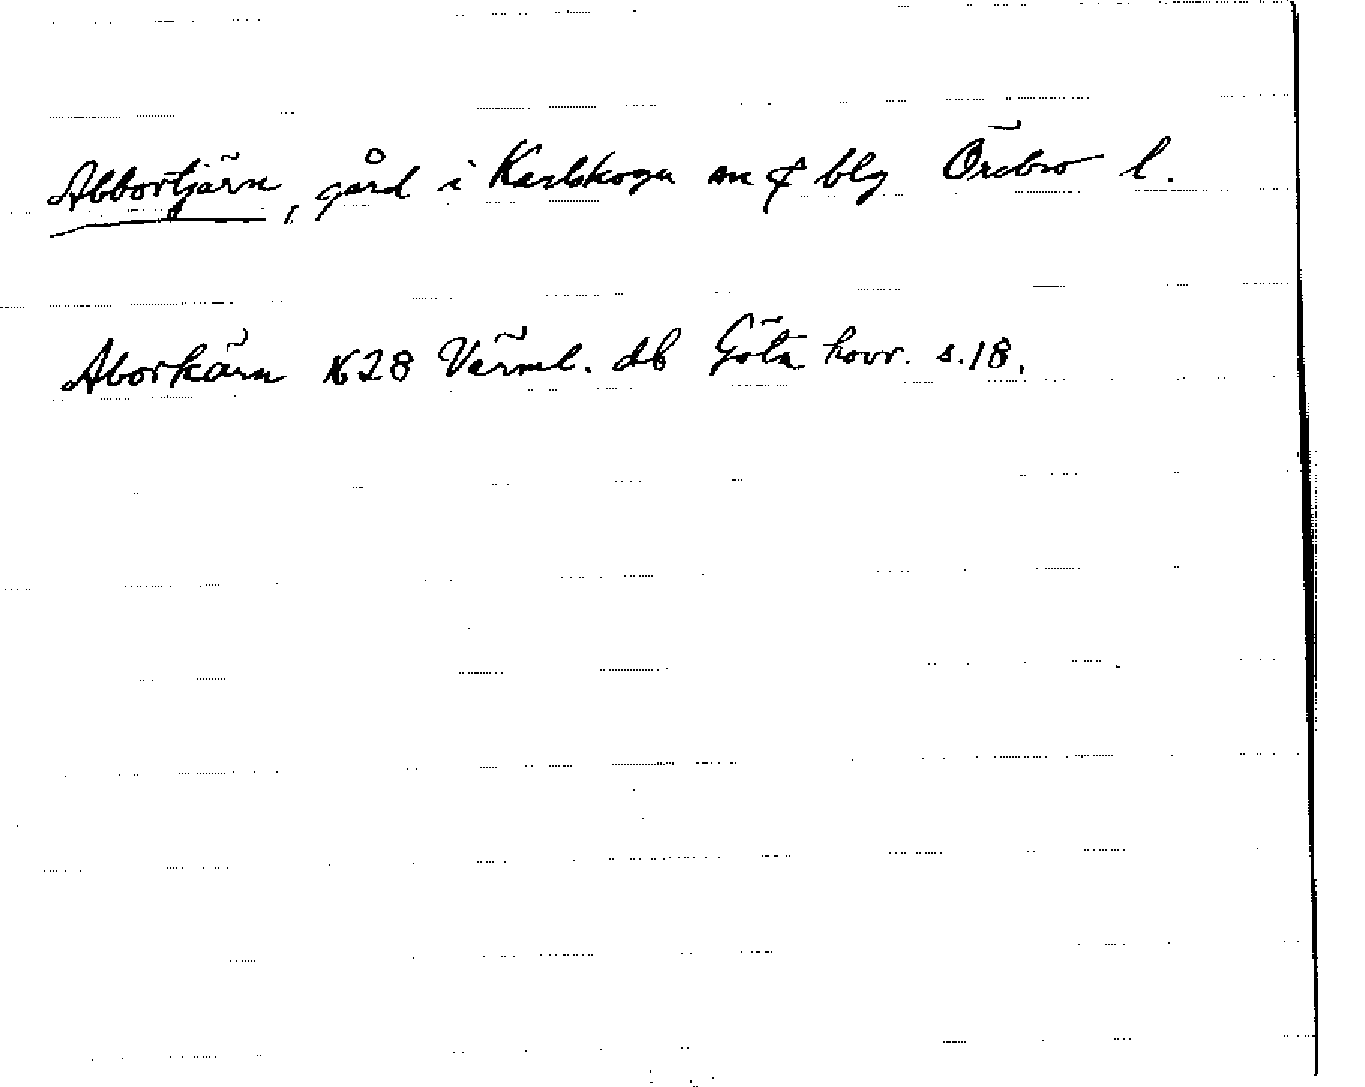 Abbortjärn, gård i Karlskoga sn & blg Örebro l.
Aborkärn 1628 Värml. db Göta hovr. s. 18.